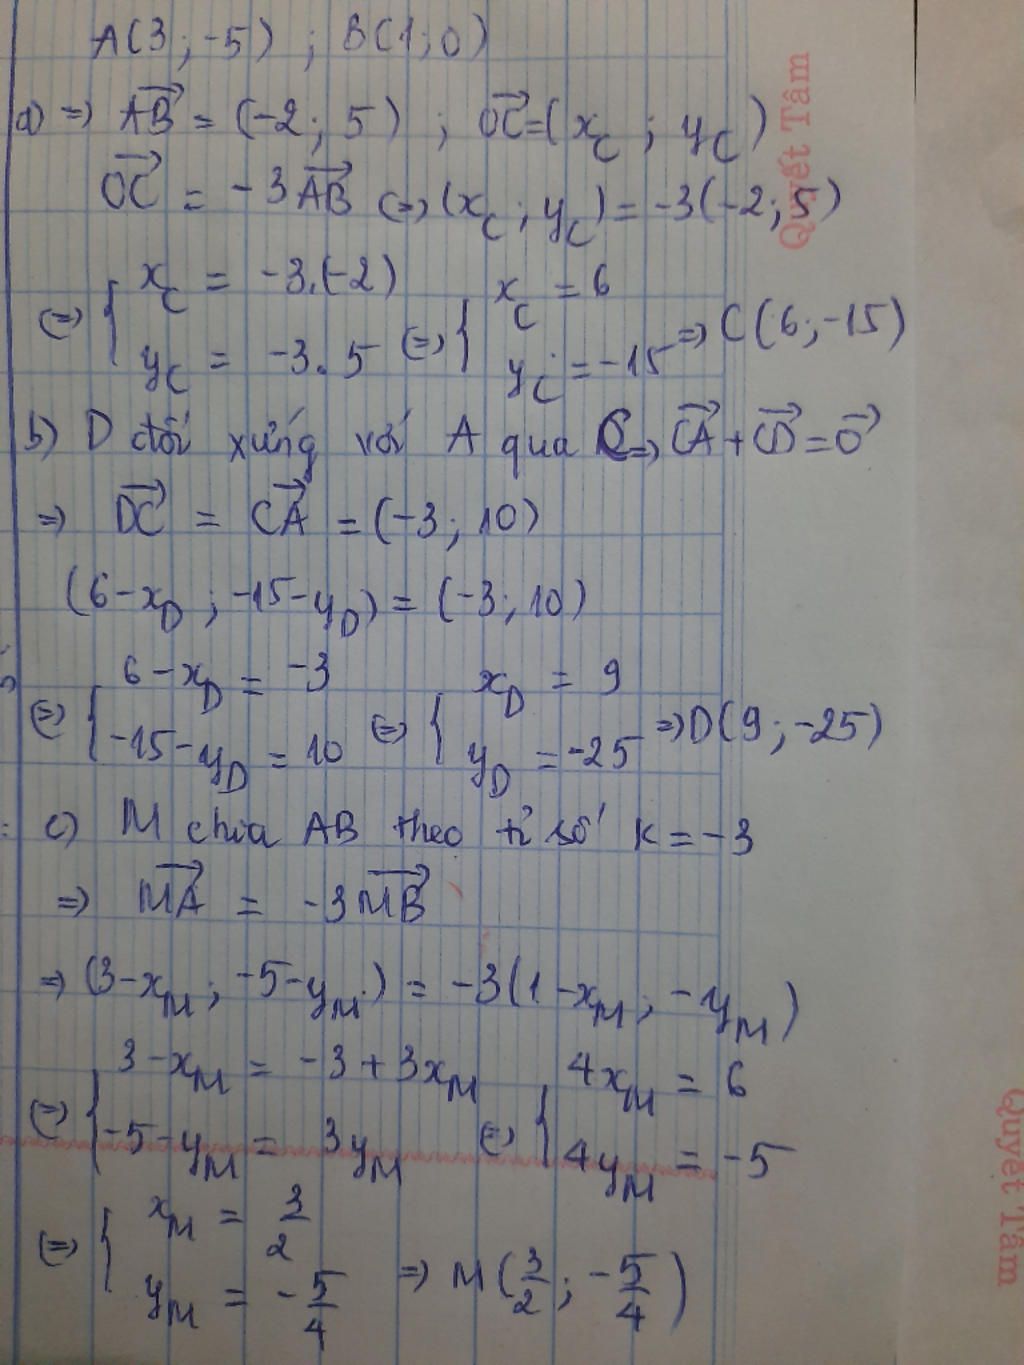 A(3;-5) ; B(1;0)
a) => \overrightarrow{AB} = (-2; 5) ; \overrightarrow{OC} = (x_C ; y_C)
\overrightarrow{OC} = -3\overrightarrow{AB} <=> (x_C ; y_C) = -3(-2; 5)
<=> { x_C = -3.(-2) ; y_C = -3.5 <=> { x_C = 6 ; y_C = -15 => C(6; -15)
b) D đối xứng với A qua C => \overrightarrow{CA} + \overrightarrow{CD} = \overrightarrow{O}
=> \overrightarrow{DC} = \overrightarrow{CA} = (-3; 10)
(6-x_D ; -15-y_D) = (-3; 10)
<=> { 6-x_D = -3 ; -15-y_D = 10 <=> { x_D = 9 ; y_D = -25 => D(9; -25)
c) M chia AB theo tỉ số k = -3
=> \overrightarrow{MA} = -3\overrightarrow{MB}
=> (3-x_M ; -5-y_M) = -3(1-x_M ; -y_M)
<=> { 3-x_M = -3+3x_M ; -5-y_M = 3y_M <=> { 4x_M = 6 ; 4y_M = -5
<=> { x_M = 3/2 ; y_M = -5/4 => M(3/2 ; -5/4)
Quyết Tâm
Quyết Tâm